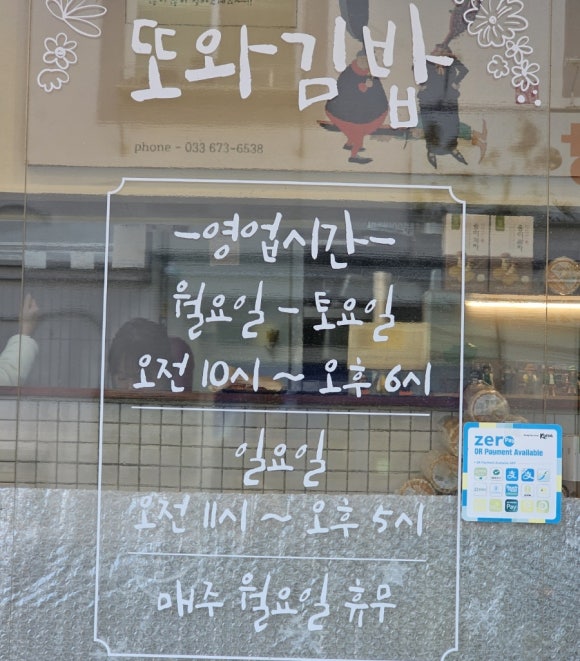 또와김밥
phone - 033 673-6538
-영업시간-
월요일 - 토요일
오전 10시 ~ 오후 6시
일요일
오전 11시 ~ 오후 5시
매주 월요일 휴무
zero Pay
QR Payment Available
Pay